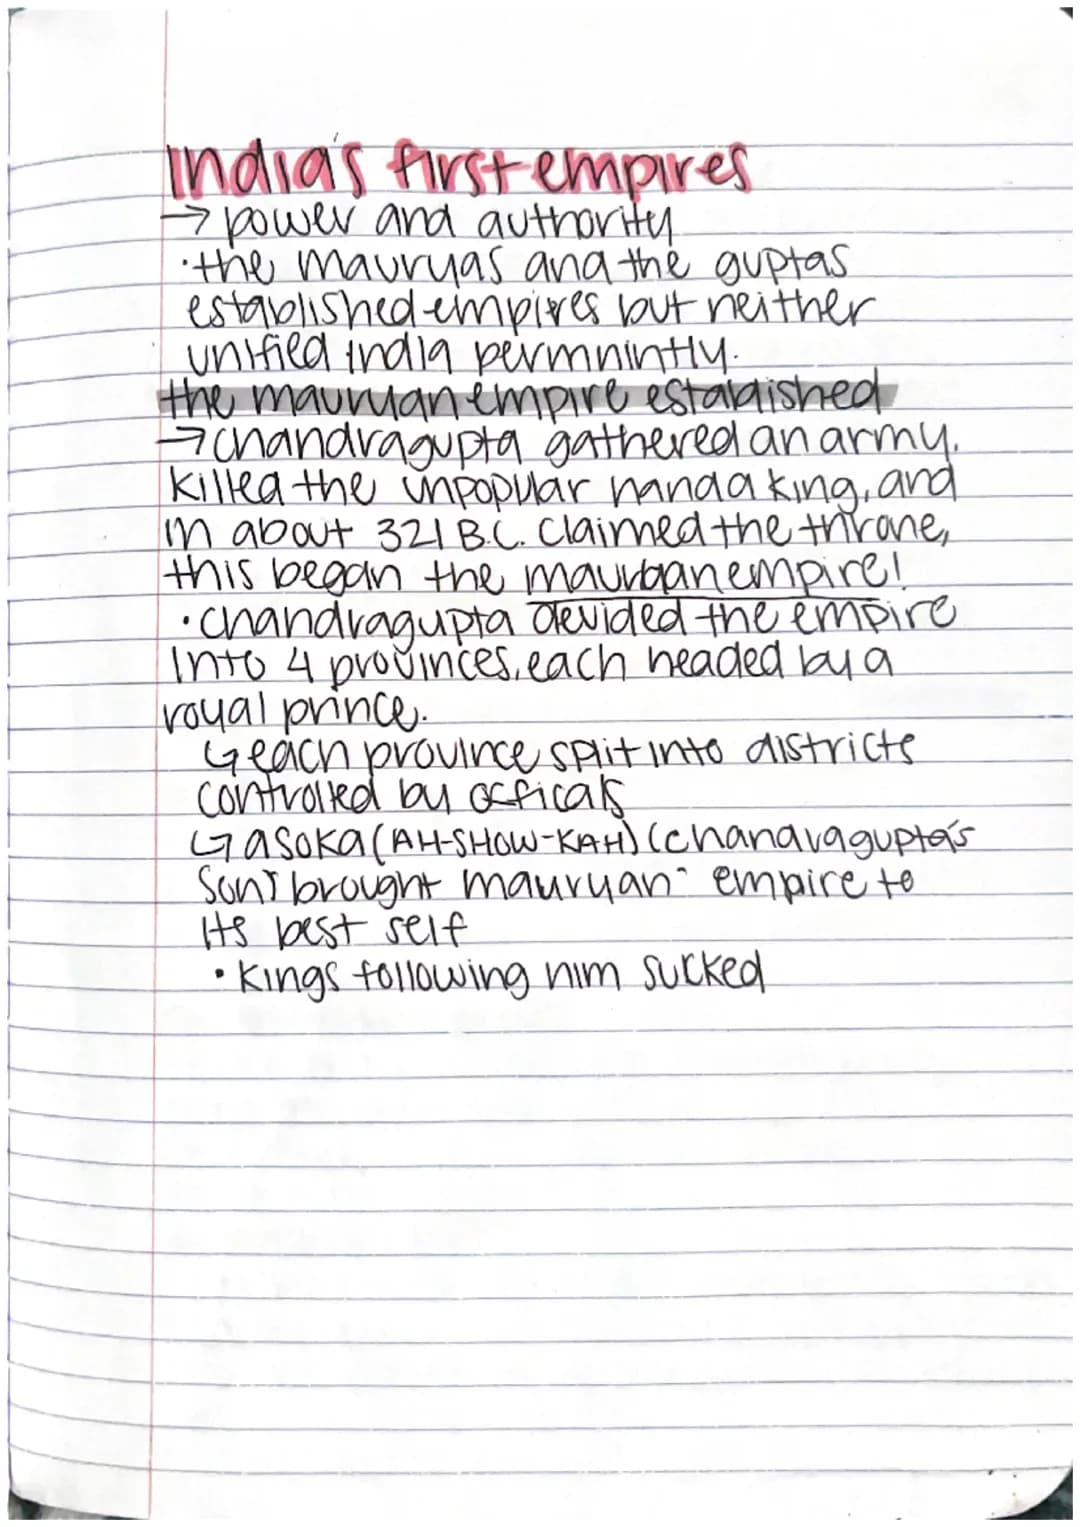 India's first empires
→ power and authority
·the mauryas and the guptas
established empires but neither
unified india permnintly.
the mauryan empire estabaished
→chandragupta gathered an army.
killed the unpopular nanda king, and
in about 321 B.C. claimed the throne,
this began the mauryan empire!
·chandragupta devided the empire
into 4 provinces, each headed by a
royal prince.
↳each province split into districts
controlled by officals
↳asoka (AH-SHOW-KAH) (chandragupta's
son) brought mauryan empire to
its best self
·kings following him sucked